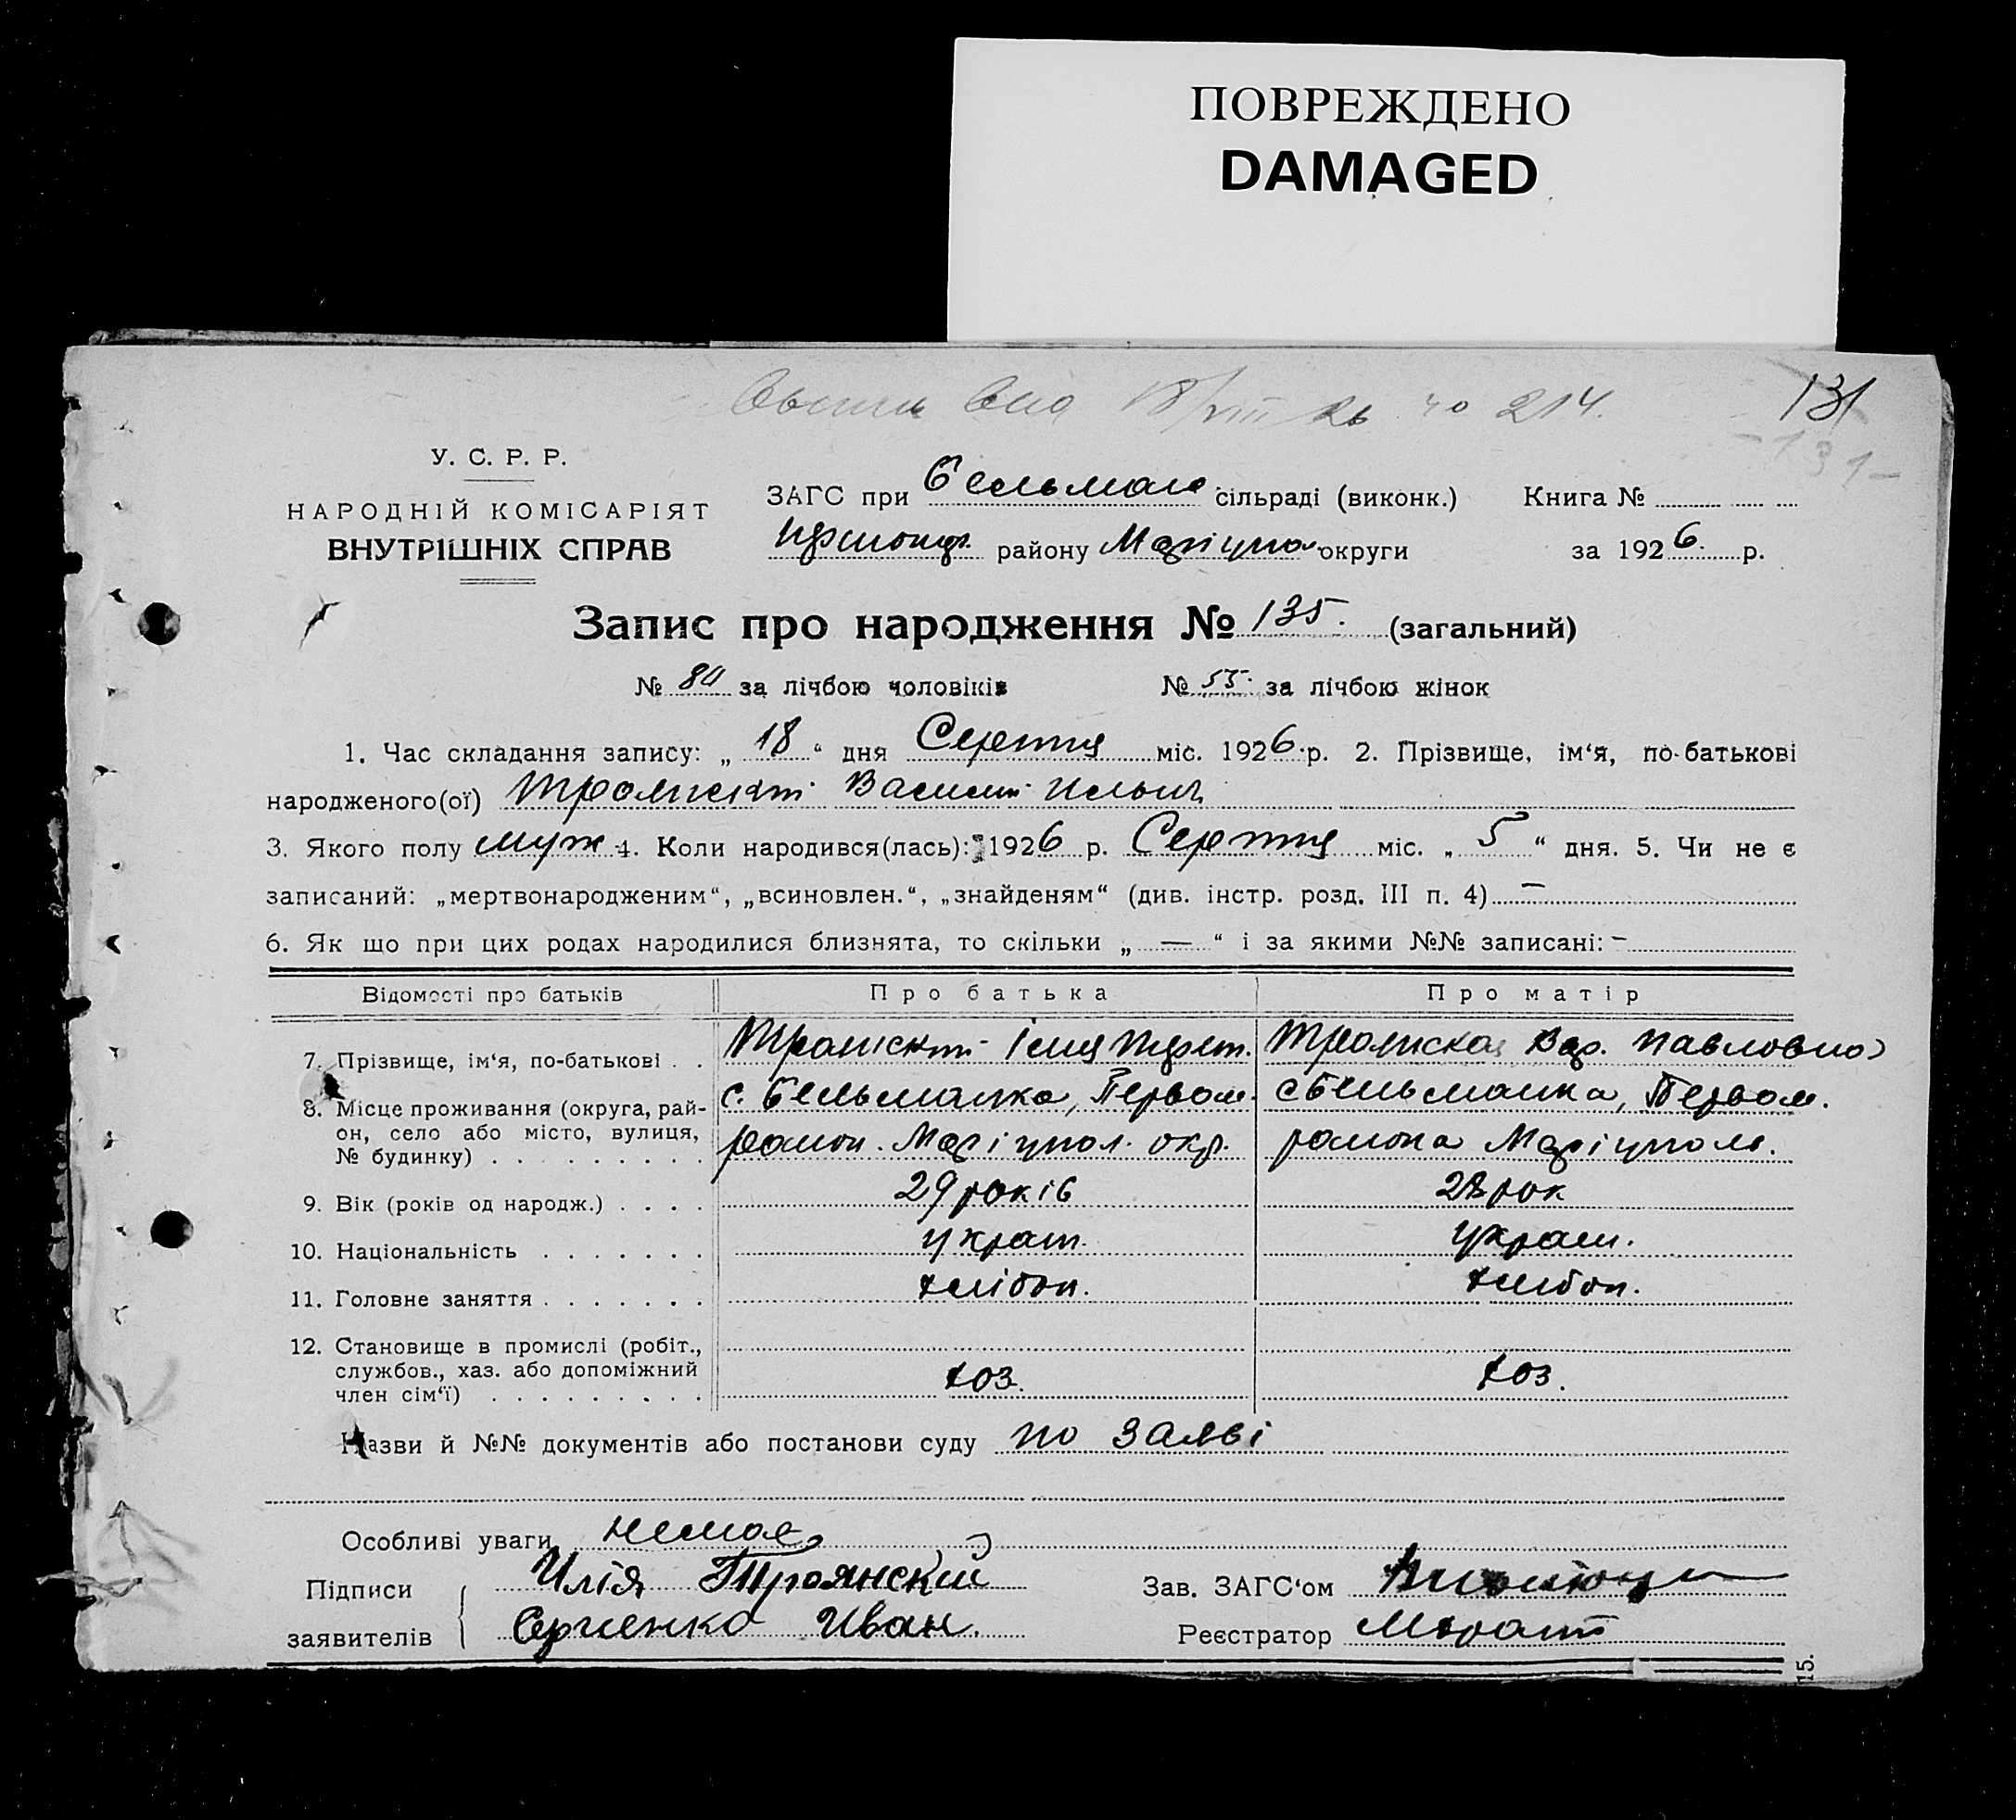 ПОВРЕЖДЕНО
DAMAGED
131
131-
214.
У. С. Р. Р.
НАРОДНІЙ КОМІСАРІЯТ
ВНУТРІШНІХ СПРАВ
ЗАГС при Бельман сільраді (виконк.) Книга №
району Маріупол округи за 1926 р.
Запис про народження № 135. (загальний)
№ 80 за лічбою чоловіків № 55 за лічбою жінок
1. Час складання запису: „ 18 “ дня Серпня міс. 1926 р. 2. Прізвище, ім‘я, по-батькові
народженого(ої) Троянский Василий Ильич
3. Якого полу муж 4. Коли народився(лась): 1926 р. Серпня міс. „ 5 “ дня. 5. Чи не є
записаний: „мертвонародженим“, „всиновлен.“, „знайденям“ (див. інстр. розд. III п. 4) —
6. Як що при цих родах народилися близнята, то скільки „ — “ і за якими №№ записані: –
Відомості про батьків Про батька Про матір
7. Прізвище, ім‘я, по-батькові . . Троянский Ілия Троянска Вар. Павловна
8. Місце проживання (округа, рай- с. Бельманка, Первом. с Бельманка, Первом.
он, село або місто, вулиця,
№ будинку) . . . . . . . . . район. Маріупол. окр. района Маріуполь.
9. Вік (років од народж.) . . . . 29 років 28 рок
10. Національність . . . . . . . украин. украин.
11. Головне заняття . . . . . . . хлібоп. хлибоп.
12. Становище в промислі (робіт.,
службов., хаз. або допоміжний
член сім‘ї) . . . . . . . . . хоз. хоз.
Назви й №№ документів або постанови суду по заяві
Особливі уваги немае
Підписи Илія Троянский Зав. ЗАГС‘ом
заявителів Сергиенко Иван. Реєстратор
15.